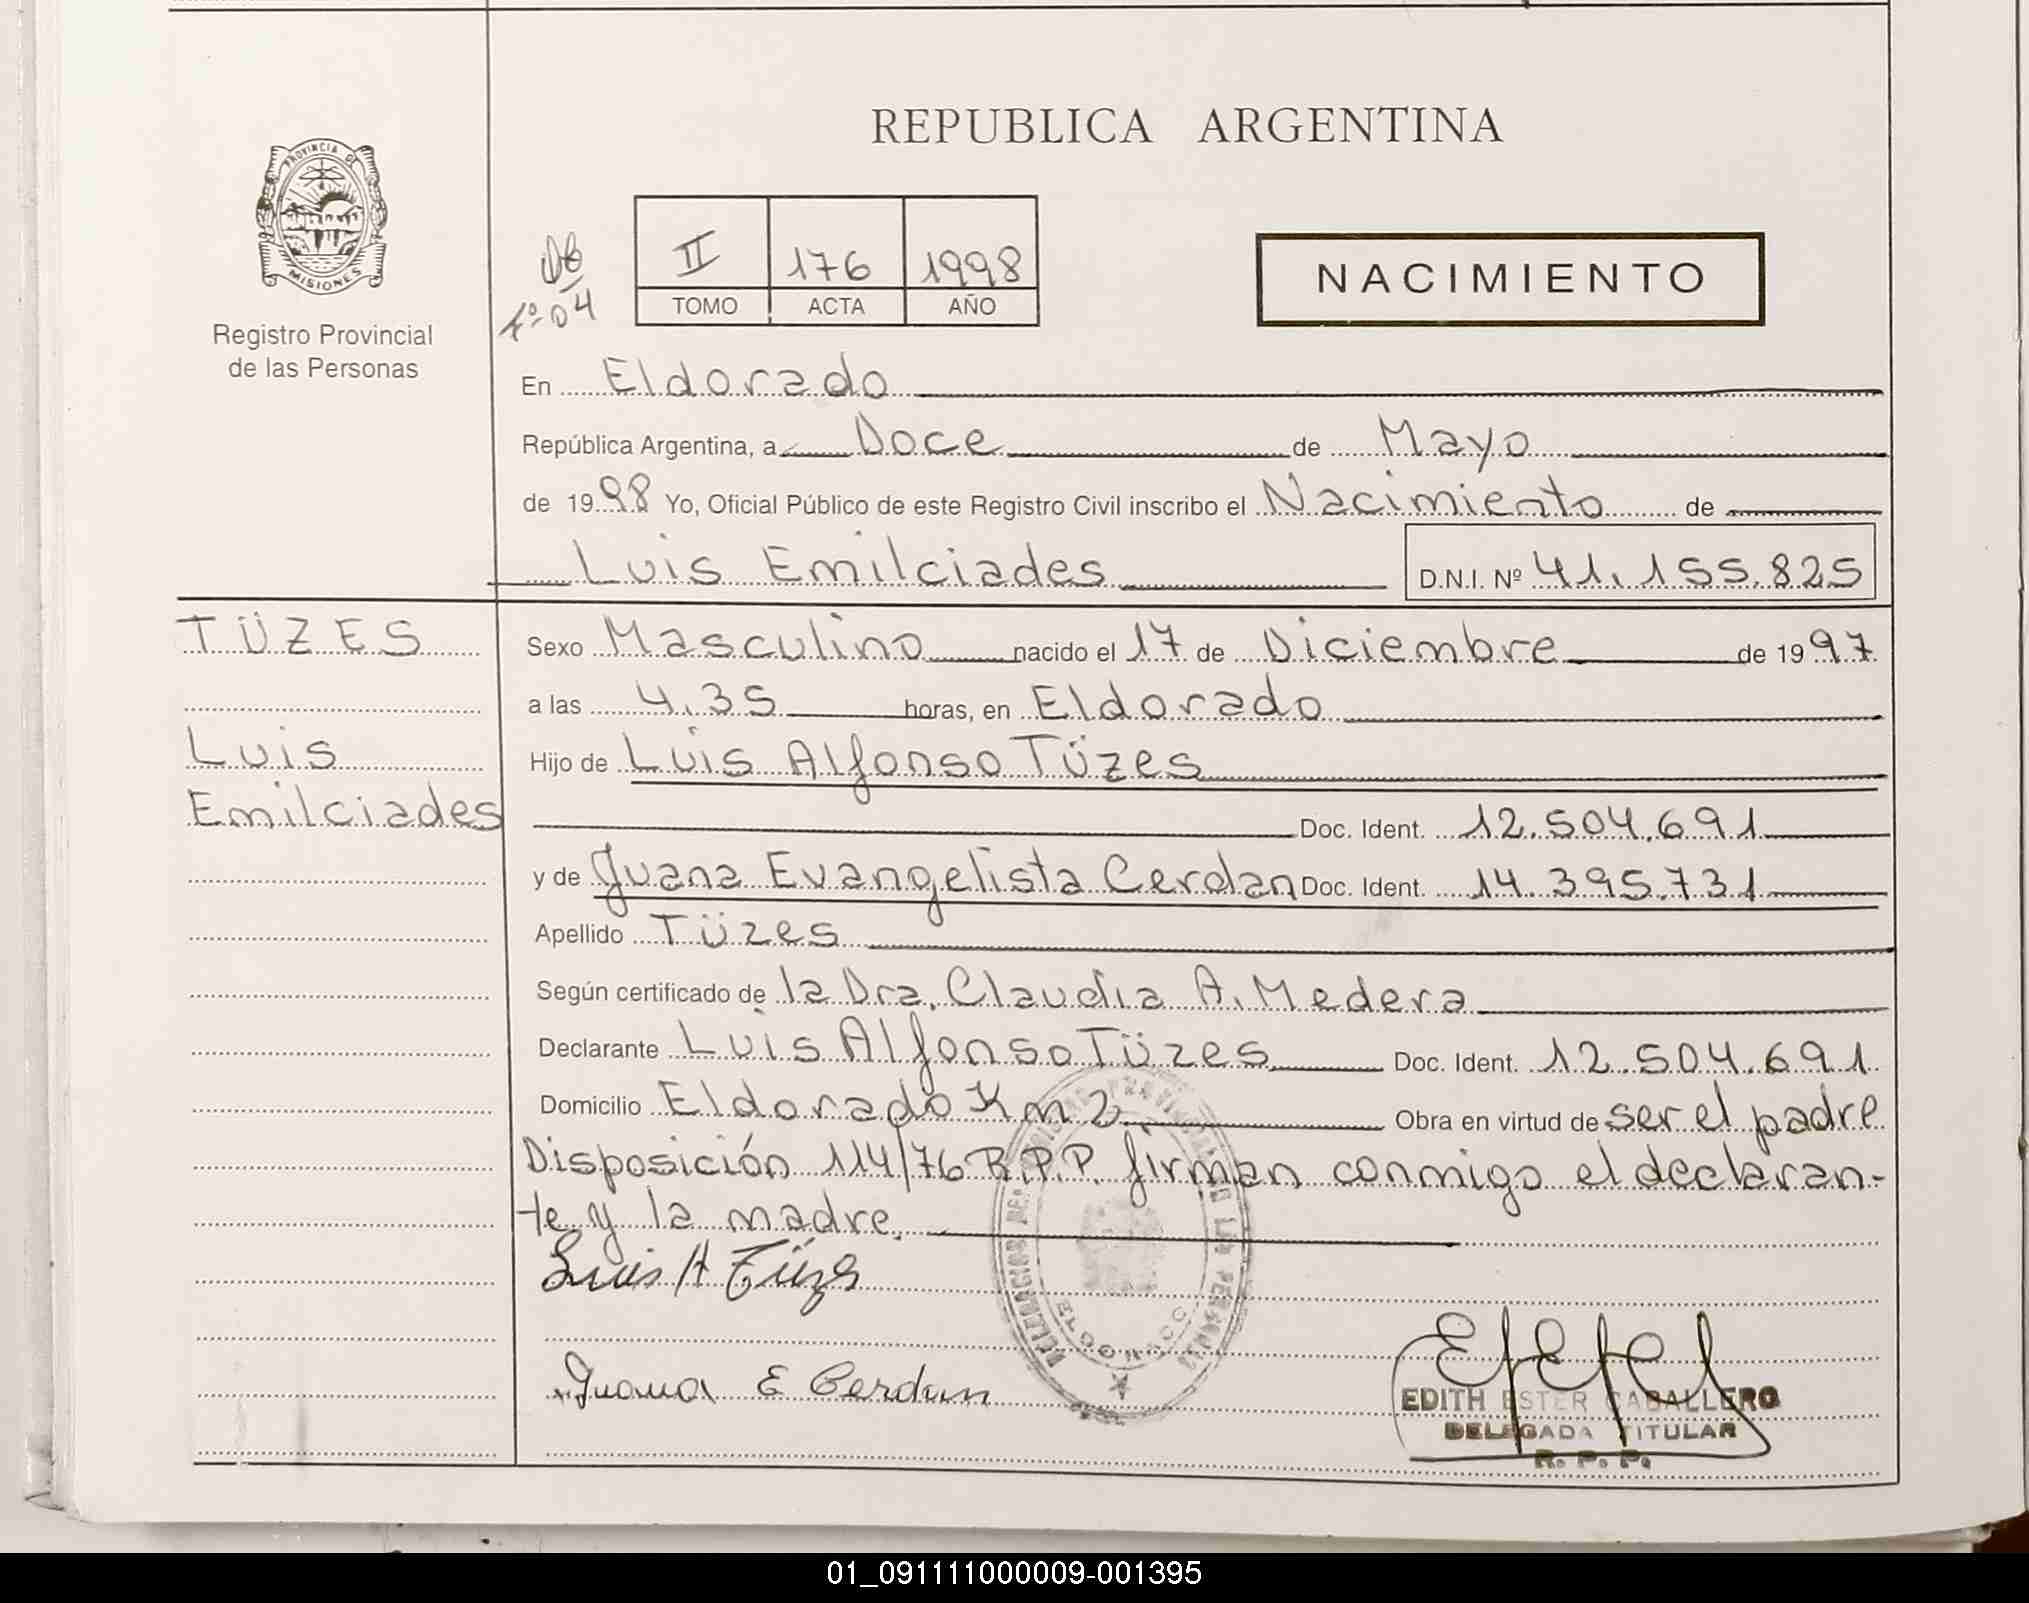 REPUBLICA ARGENTINA
PROVINCIA DE
MISIONES
Registro Provincial
de las Personas
Nº 04
II 176 1998
TOMO ACTA AÑO
NACIMIENTO
En Eldorado
República Argentina, a Doce de Mayo
de 1998 Yo, Oficial Público de este Registro Civil inscribo el Nacimiento de
Luis Emilciades D.N.I. Nº 41.155.825
TÜZES
Luis
Emilciades
Sexo Masculino nacido el 17 de Diciembre de 1997
a las 4.35 horas, en Eldorado
Hijo de Luis Alfonso Tüzes
Doc. Ident. 12.504.691
y de Juana Evangelista Cerdan Doc. Ident. 14.395.731
Apellido Tüzes
Según certificado de la Dra. Claudia A. Medera
Declarante Luis Alfonso Tüzes Doc. Ident. 12.504.691
Domicilio Eldorado Km 2 Obra en virtud de ser el padre
Disposición 114/76 R.P.P. firman conmigo el declaran-
te y la madre.
Luis A Tüzes
Juana E Cerdan
EDITH ESTER CABALLERO
DELEGADA TITULAR
R. P. P.
01_091111000009-001395